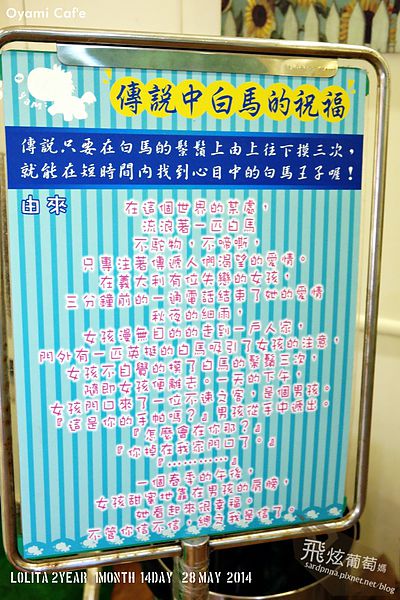 Oyami Cafe
傳說中白馬的祝福
傳說只要在白馬的鬃鬚上由上往下摸三次，
就能在短時間內找到心目中的白馬王子喔！
由來
在這個世界的某處，
流浪著一匹白馬
不駝物，不啼嘶，
只專注著傳遞人們渴望的愛情。
在義大利有位失戀的女孩，
三分鐘前的一通電話結束了她的愛情
秋夜的細雨，
女孩漫無目的的走到一戶人家，
門外有一匹英挺的白馬吸引了女孩的注意，
女孩不自覺的摸了白馬的鬃鬚三次，
隨即女孩便離去。一天的下午，
女孩門口來了一位不速之客，是個男孩。
『這是你的手帕嗎？』男孩從手中遞出。
『怎麼會在你那？』
『你掉在我家門口了。』
『…………』
一個春季的午後，
女孩甜蜜地靠在男孩的肩膀，
她看起來很幸福。
不管你信不信，總之我是信了。
飛炫葡萄媽
sardpnna.pixnet.net/blog
LOLITA 2YEAR 1MONTH 14DAY 28 MAY 2014